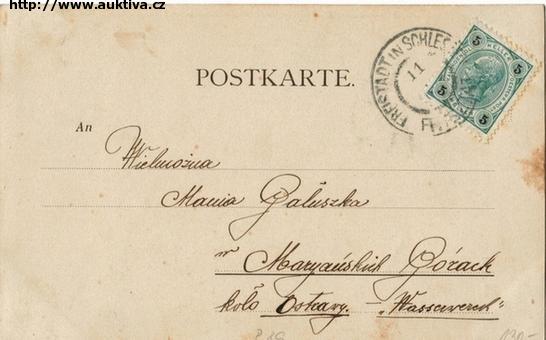 http://www.auktiva.cz
POSTKARTE.
FREISTADT IN SCHLES
11
5 HELLER 5
5 5
An
Wielmożna
Mania Galuszka
w Maryańskich Górach
koło Ostrawy. - "Wasserwerk"